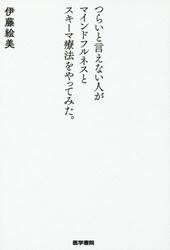 つらいと言えない人が
マインドフルネスと
スキーマ療法をやってみた。
伊藤絵美
医学書院